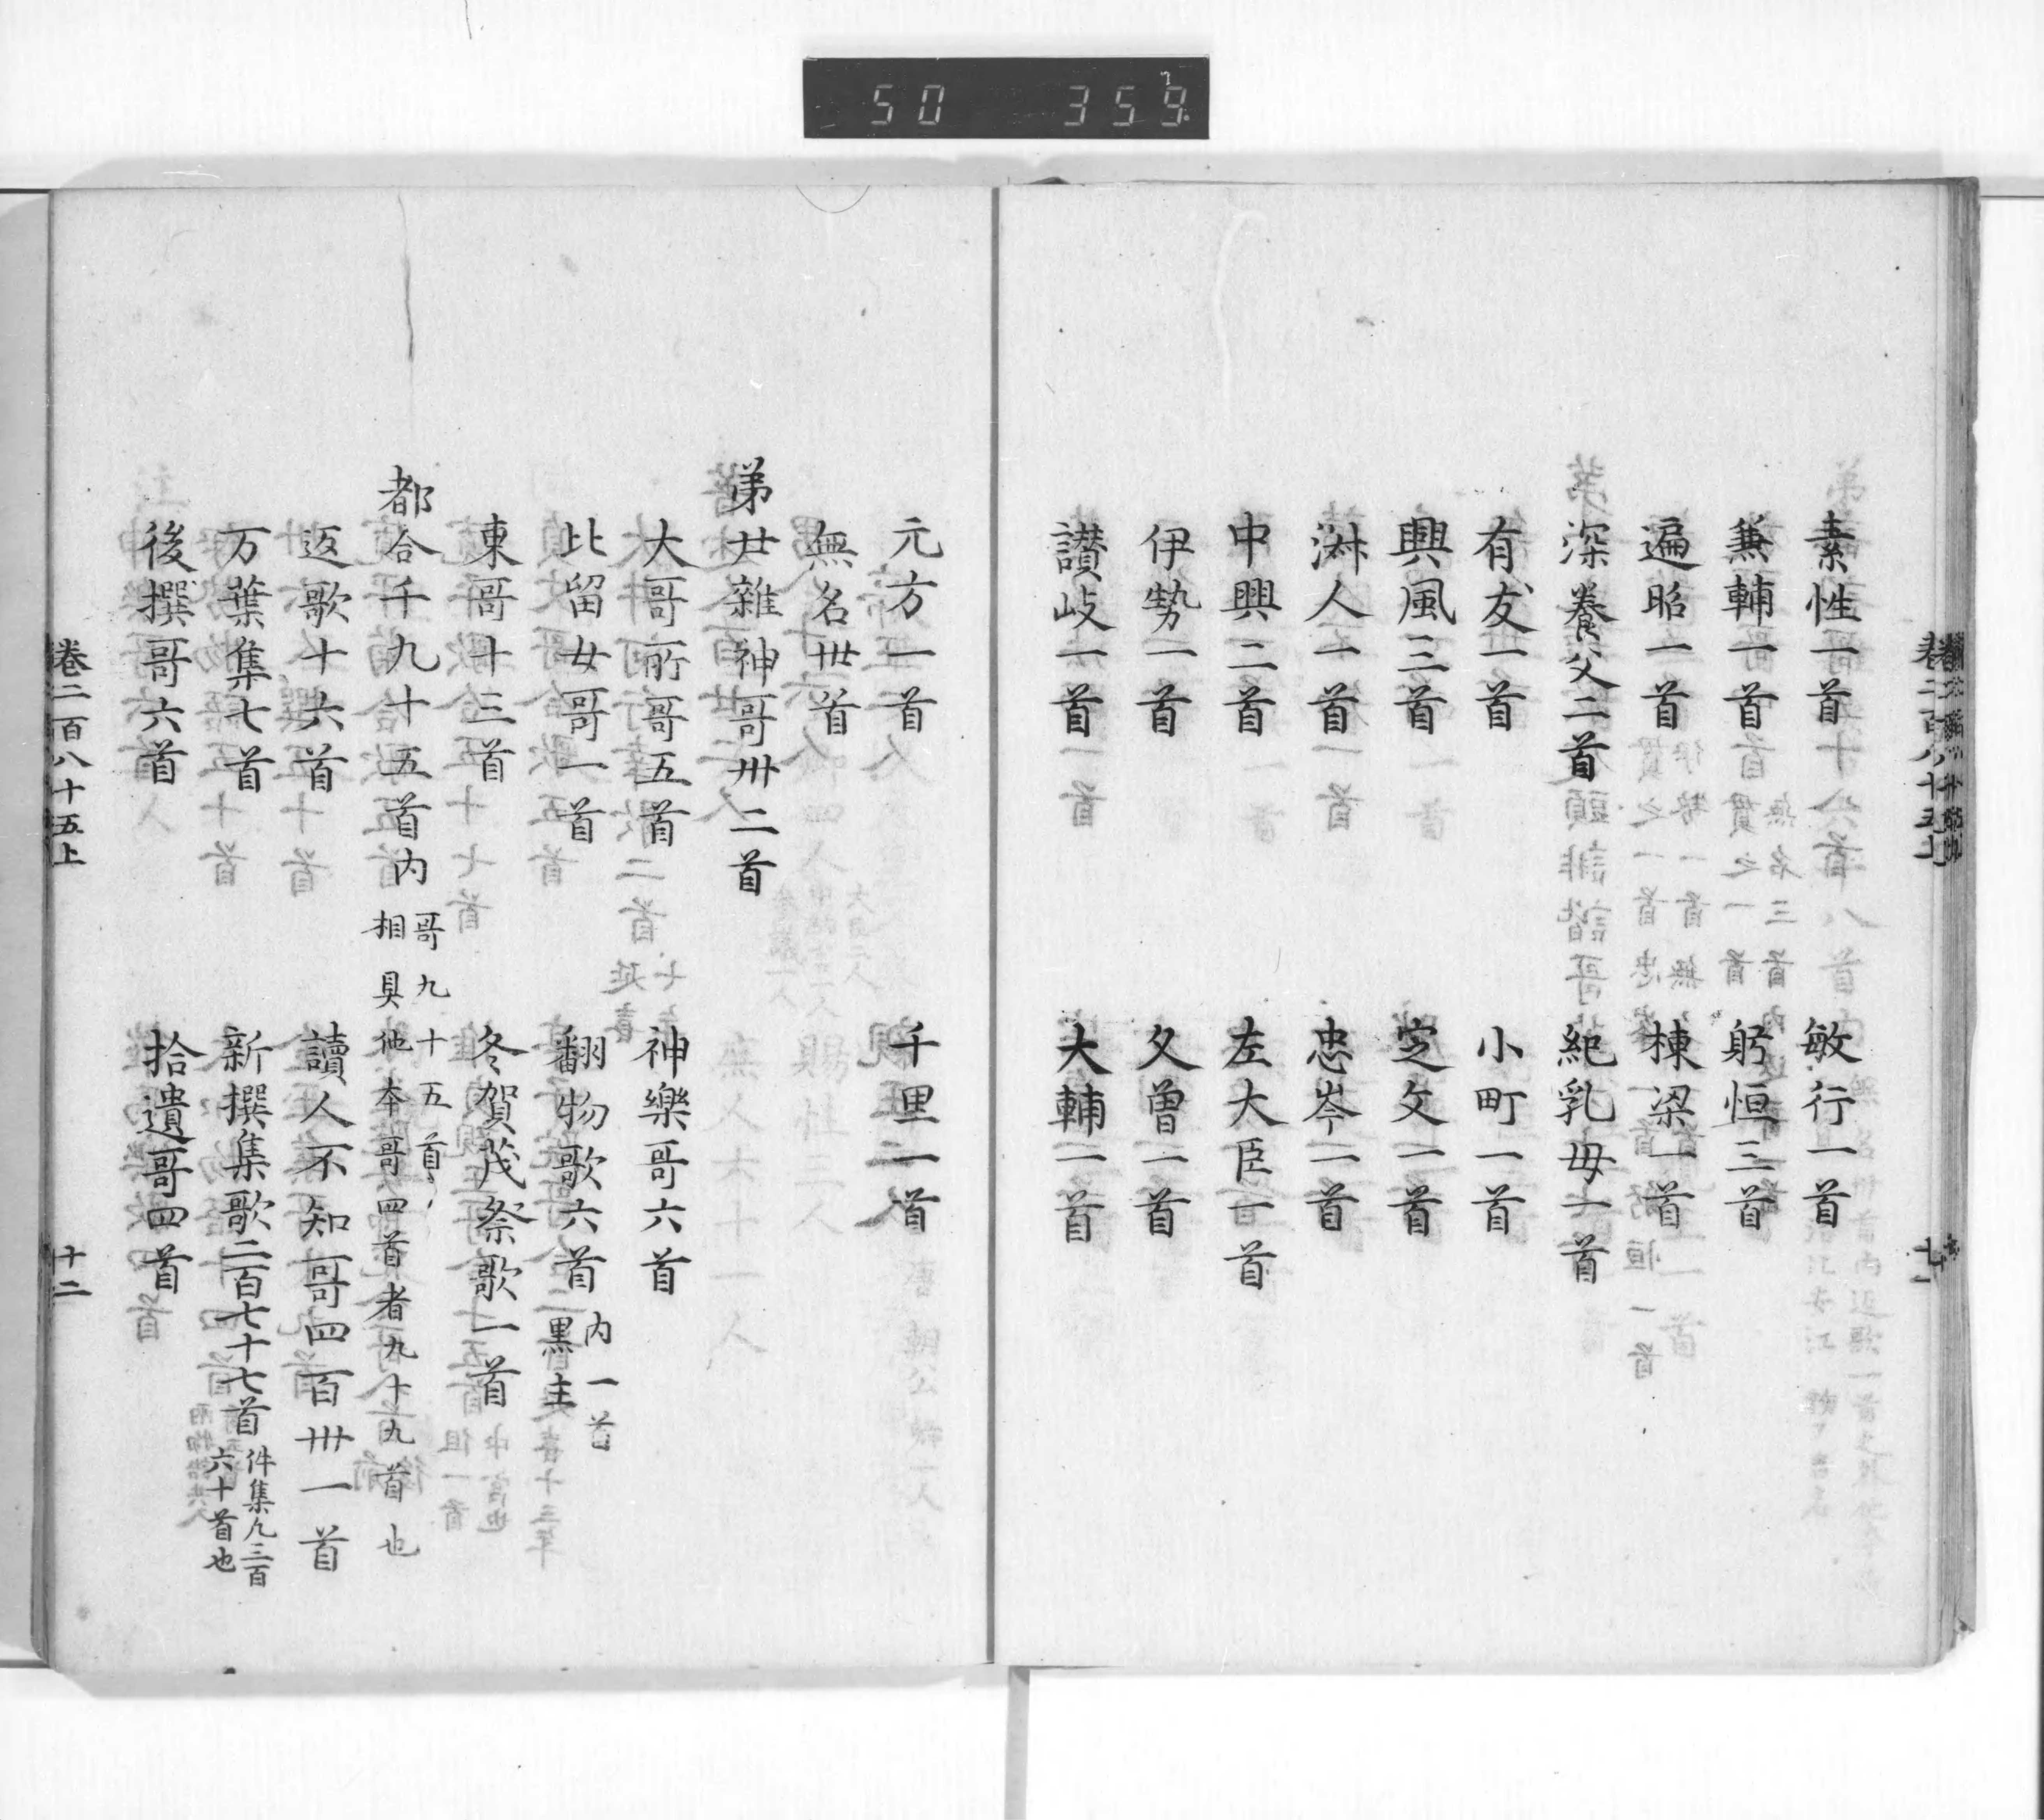 50 359
素性一首 敏行一首
兼輔一首 躬恒三首
遍昭一首 棟梁一首
深養父二首 紀乳母一首
有友一首 小町一首
興風三首 定文一首
淋人一首 忠岑二首
中興二首 左大臣一首
伊勢一首 久曽一首
讃岐一首 大輔一首
卷二百八十五上
十一
元方一首 千里一首
無名卅首
第廿雜神哥卅二首
大哥所哥五首 神樂哥六首
比留女哥一首 翻物歌六首 内一首
黒主
東哥十三首 冬賀茂祭歌一首
都合千九十五首内 哥九十五首
相具他本哥四首者九十九首也
返歌十六首 讀人不知哥四百卅一首
万葉集七首 新撰集歌二百七十七首 件集凡三百
六十首也
後撰哥六首 拾遺哥四首
卷二百八十五上
十二